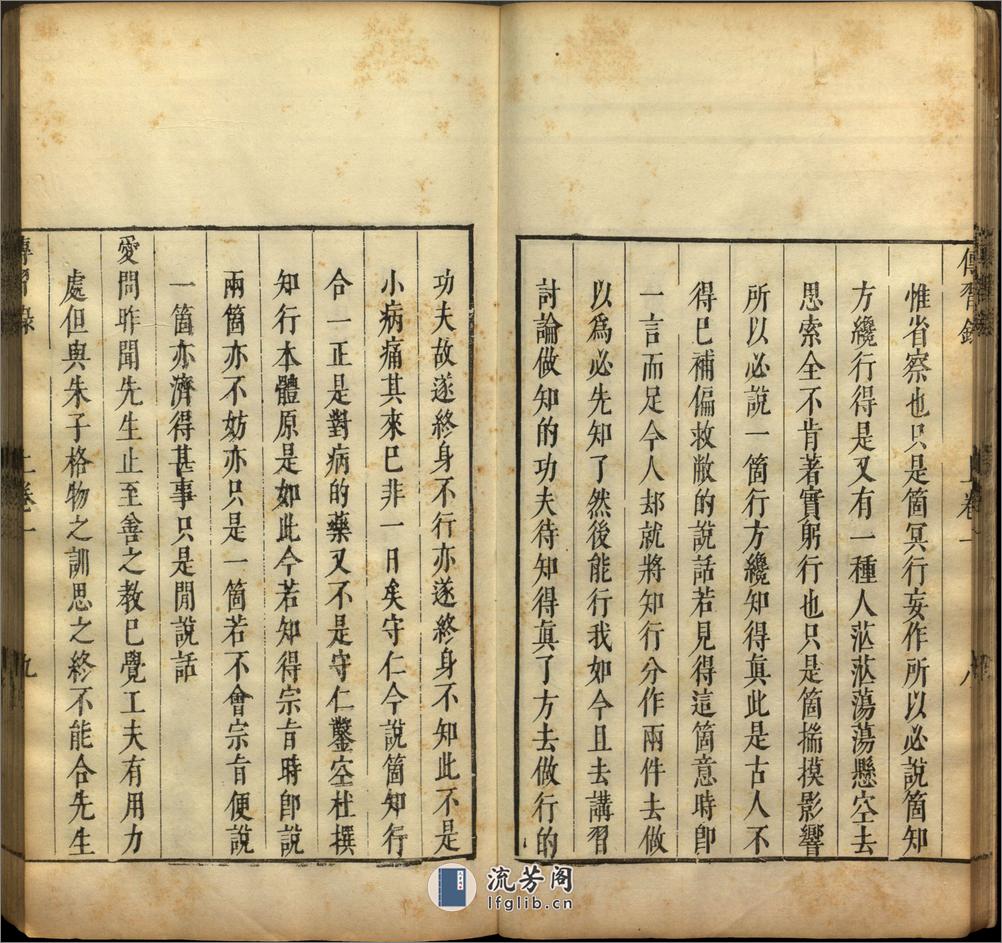 傳習錄 上卷一 八
惟省察也只是箇冥行妄作所以必說箇知
方纔行得是又有一種人茫茫蕩蕩懸空去
思索全不肯著實躬行也只是箇揣摸影響
所以必說一箇行方纔知得眞此是古人不
得已補偏救敝的說話若見得這箇意時卽
一言而足今人却就將知行分作兩件去做
以爲必先知了然後能行我如今且去講習
討論做知的功夫待知得眞了方去做行的
功夫故遂終身不行亦遂終身不知此不是
小病痛其來已非一日矣守仁今說箇知行
合一正是對病的藥又不是守仁鑿空杜撰
知行本體原是如此今若知得宗旨時卽說
兩箇亦不妨亦只是一箇若不會宗旨便說
一箇亦濟得甚事只是閒說話
愛問昨聞先生止至善之教已覺工夫有用力
處但與朱子格物之訓思之終不能合先生
傳習錄 上卷一 九
流芳阁
lfglib.cn